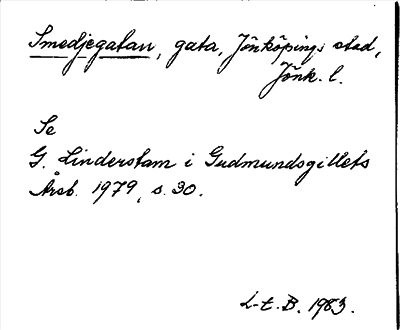 Smedjegatan, gata, Jönköpings stad,
Jönk. l.
Se
G. Linderstam i Gudmundsgillets
Årsb. 1979, s. 30.
L-t. B. 1983.